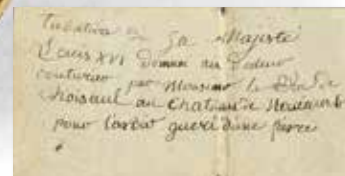 Tabatière de Sa Majesté
Louis XVI Donnée au Docteur
couturier par Monsieur le Duc de
choiseul au Chateau de
pour l'avoir gueri d'une fievre